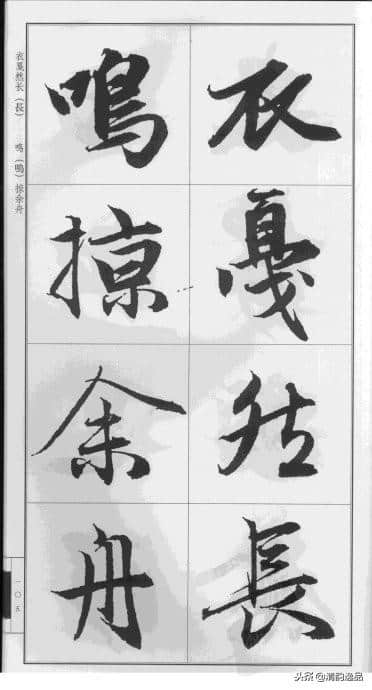 衣戛然長
鳴掠余舟
衣戛然长（長） 鸣（鳴）掠余舟
一〇五
头条@清韵逸品